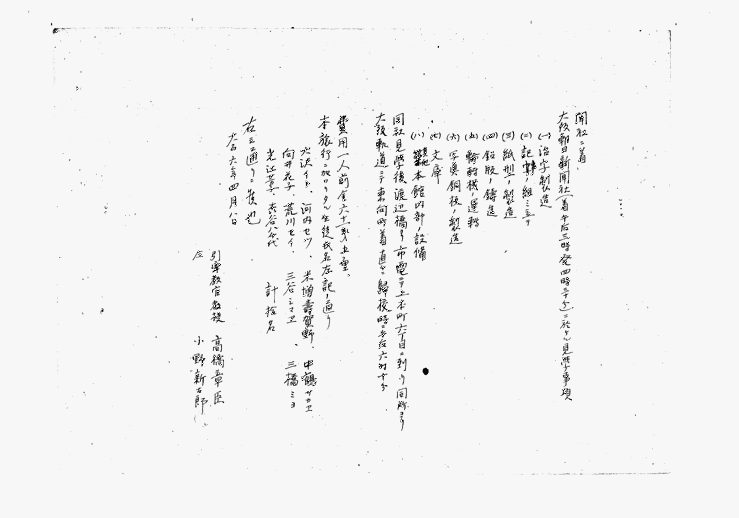 聞社ニ着
大阪朝日新聞社(着午后三時発四時三十分)ニ於ケル見学事項
(一)活字ノ製造
(二)記事ノ組ミ立テ
(三)紙型ノ製造
(四)鉛版ノ鋳造
(五)輪転機ノ運転
(六)写真銅板ノ製造
(七)文庫
(八)其他本館内部ノ設備
同社見学後渡辺橋ヨリ市電ニテ上本町六丁目ニ到リ同所ヨリ
大阪軌道ニテ東向町着直チニ帰校時ニ午后六時十分
費用一人前金六十一銭五厘
本旅行ニ加ハリタル生徒氏名左記ノ通リ
穴沢イト、河内セツ、米増壽賀野、中鶴サカエ
向井花子、荒川セイ、三谷シマエ、三橋ミヨ
光江 、吉谷八千代 計拾名
右之通リニ候也
大正六年四月八日
引率教官教授 高橋章臣
仝 小野新太郎